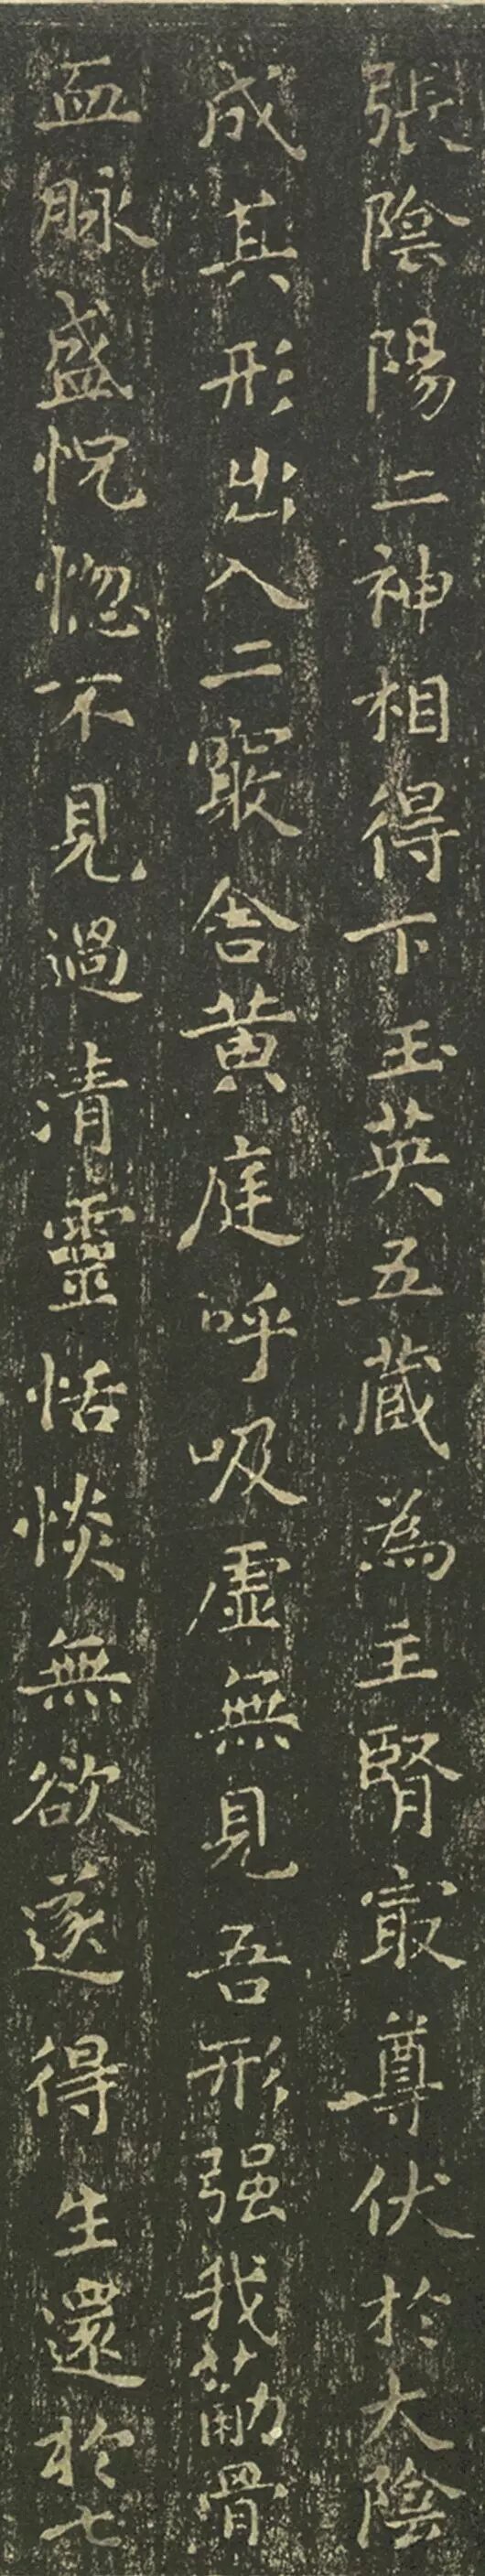 張陰陽二神相得下玉英五藏為主腎㝡尊伏於大陰
成其形出入二竅舍黃庭呼吸虛無見吾形强我筋骨
血脉盛怳惚不見過清靈恬惔無欲遂得生還於七